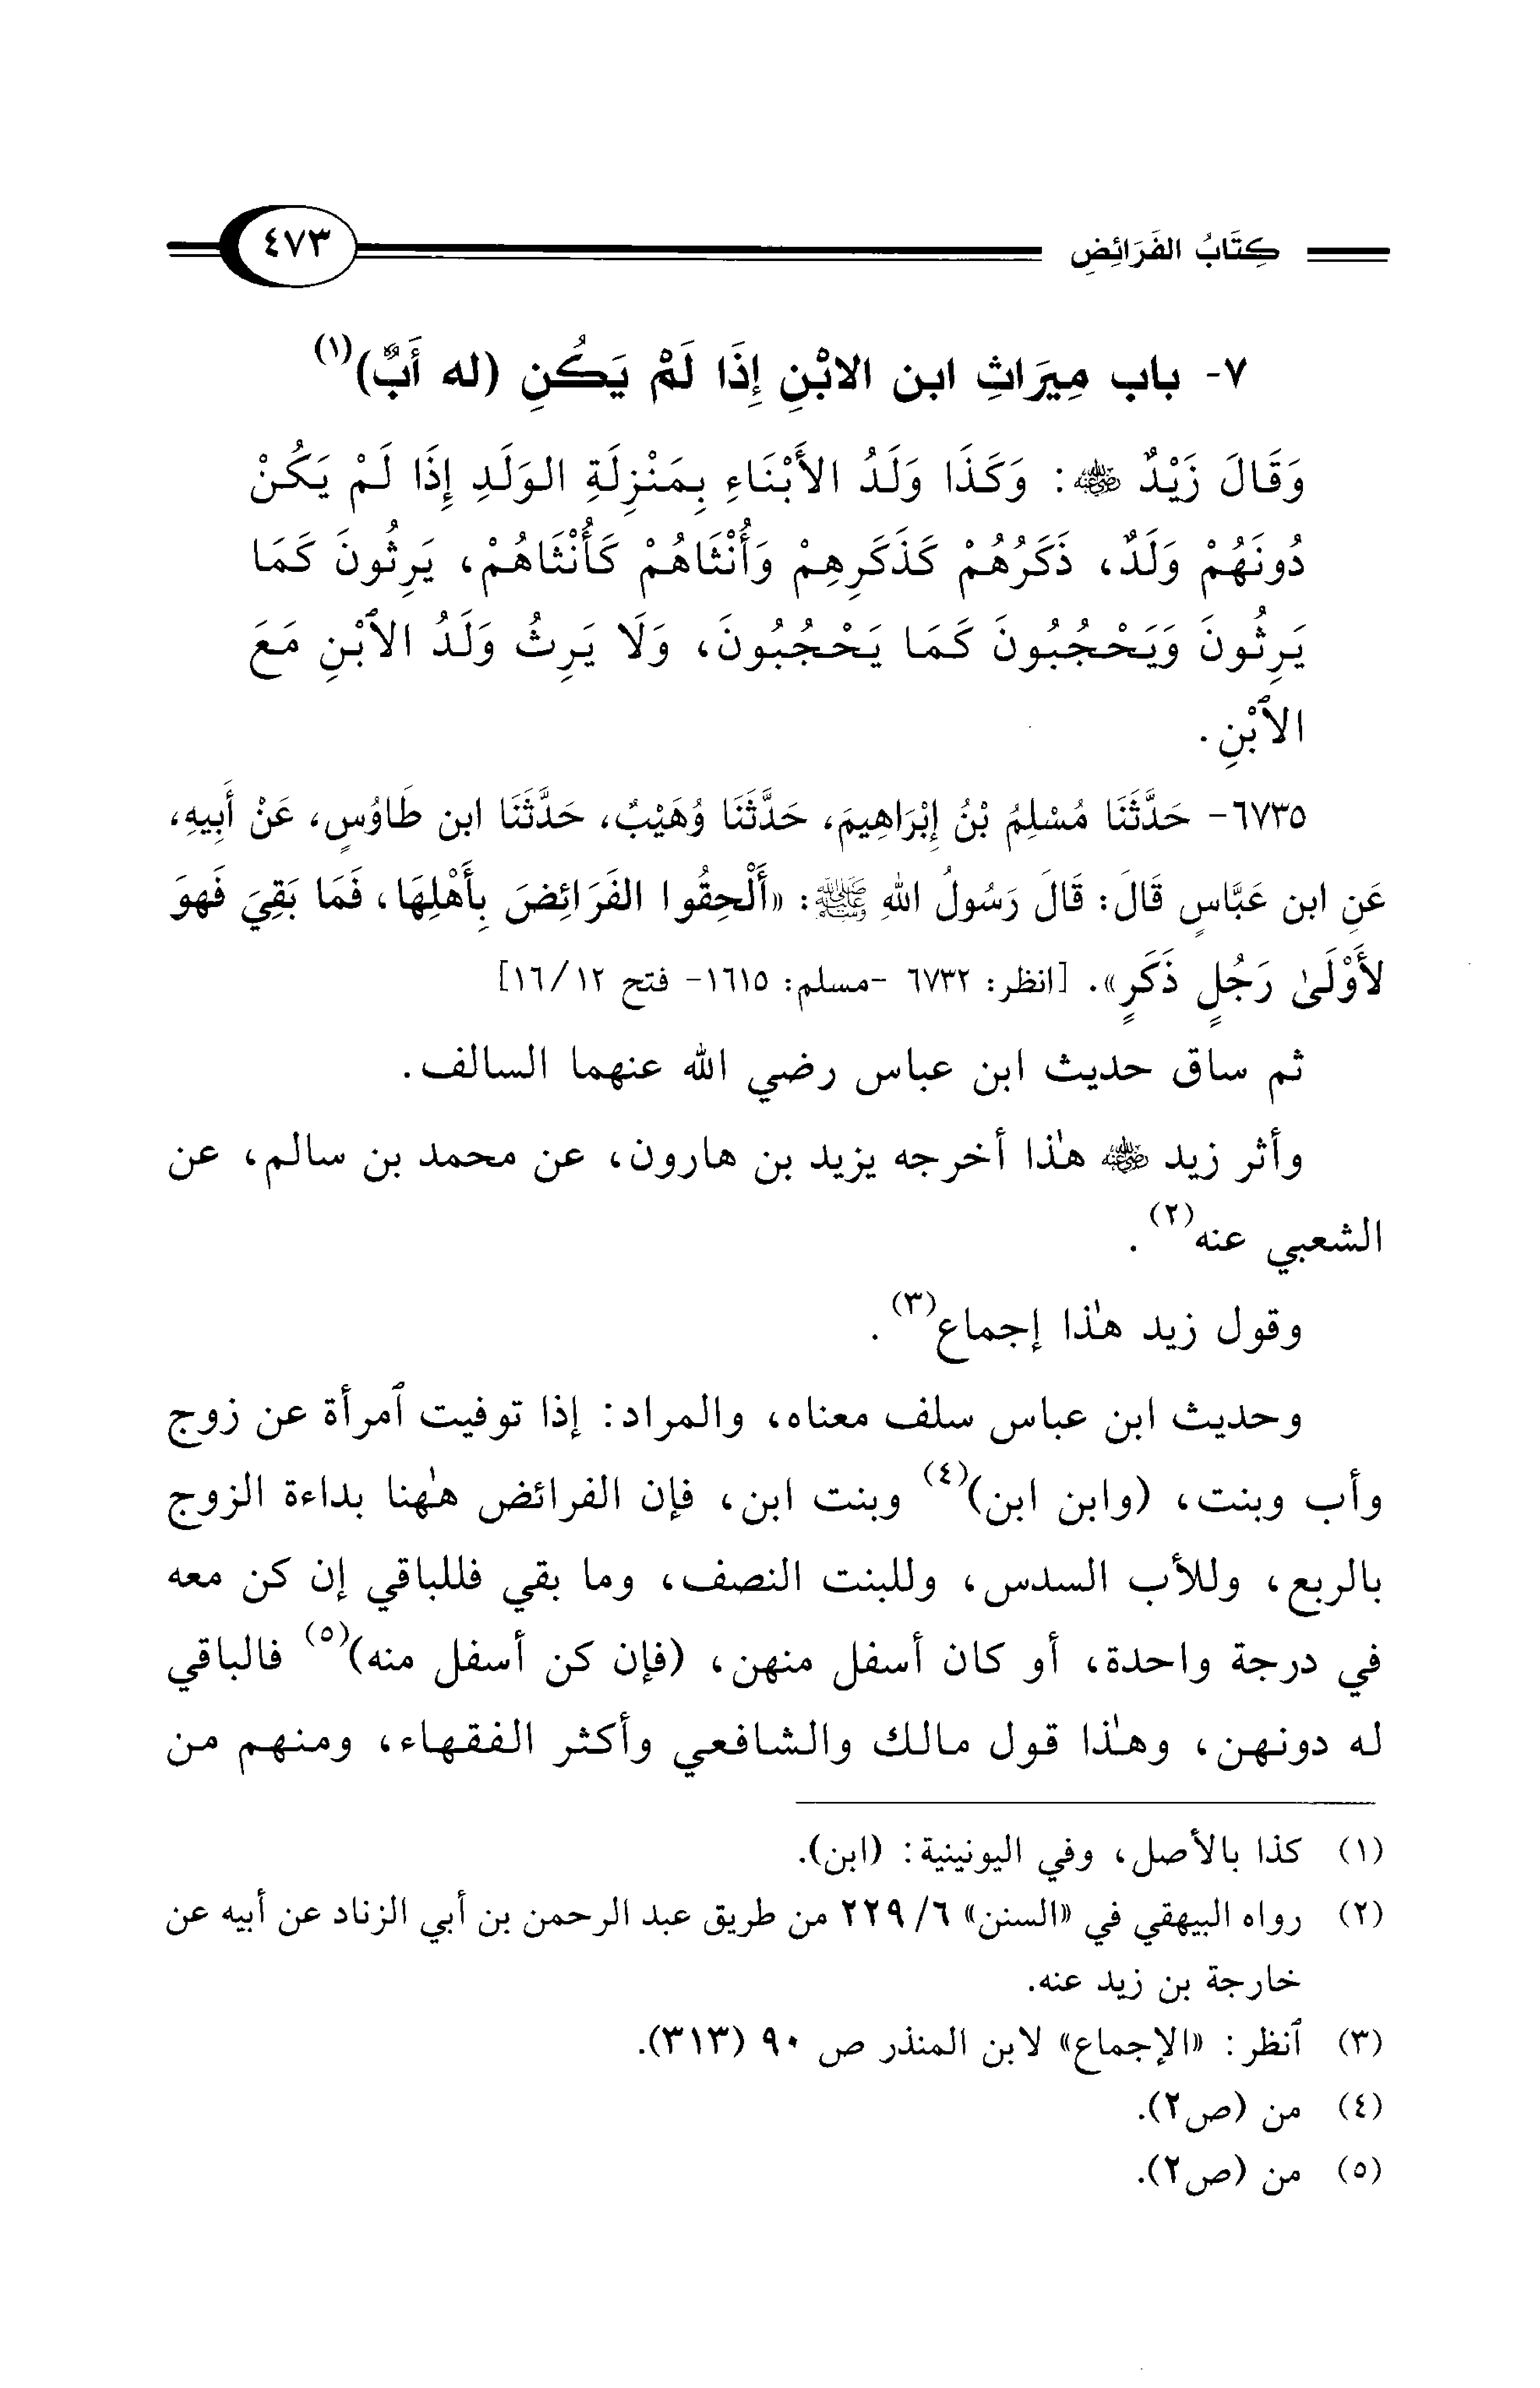 كِتَابُ الفَرَائِضِ ٤٧٣
٧- باب مِيرَاثِ ابن الابْنِ إِذَا لَمْ يَكُنِ (له أَبٌ)(١)
وَقَالَ زَيْدٌ رضي الله عنه: وَكَذَا وَلَدُ الأَبْنَاءِ بِمَنْزِلَةِ الوَلَدِ إِذَا لَمْ يَكُنْ
دُونَهُمْ وَلَدٌ، ذَكَرُهُمْ كَذَكَرِهِمْ وَأُنْثَاهُمْ كَأُنْثَاهُمْ، يَرِثُونَ كَمَا
يَرِثُونَ وَيَحْجُبُونَ كَمَا يَحْجُبُونَ، وَلَا يَرِثُ وَلَدُ الاَبْنِ مَعَ
الاَبْنِ.
٦٧٣٥- حَدَّثَنَا مُسْلِمُ بْنُ إِبْرَاهِيمَ، حَدَّثَنَا وُهَيْبٌ، حَدَّثَنَا ابن طَاوُسٍ، عَنْ أَبِيهِ،
عَنِ ابن عَبَّاسٍ قَالَ: قَالَ رَسُولُ اللهِ ﷺ: «أَلْحِقُوا الفَرَائِضَ بِأَهْلِهَا، فَمَا بَقِيَ فَهوَ
لأَوْلَىٰ رَجُلٍ ذَكَرٍ». [انظر: ٦٧٣٢ -مسلم: ١٦١٥- فتح ١٢/ ١٦]
ثم ساق حديث ابن عباس رضي الله عنهما السالف.
وأثر زيد رضي الله عنه هٰذا أخرجه يزيد بن هارون، عن محمد بن سالم، عن
الشعبي عنه(٢).
وقول زيد هٰذا إجماع(٣).
وحديث ابن عباس سلف معناه، والمراد: إذا توفيت ٱمرأة عن زوج
وأب وبنت، (وابن ابن)(٤) وبنت ابن، فإن الفرائض هٰهنا بداءة الزوج
بالربع، وللأب السدس، وللبنت النصف، وما بقي فللباقي إن كن معه
في درجة واحدة، أو كان أسفل منهن، (فإن كن أسفل منه)(٥) فالباقي
له دونهن، وهٰذا قول مالك والشافعي وأكثر الفقهاء، ومنهم من
(١) كذا بالأصل، وفي اليونينية: (ابن).
(٢) رواه البيهقي في «السنن» ٦/ ٢٢٩ من طريق عبد الرحمن بن أبي الزناد عن أبيه عن
خارجة بن زيد عنه.
(٣) ٱنظر: «الإجماع» لابن المنذر ص ٩٠ (٣١٣).
(٤) من (ص٢).
(٥) من (ص٢).